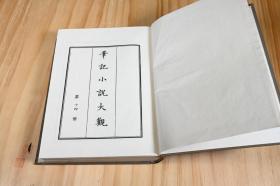 筆記小說大觀
第十四冊